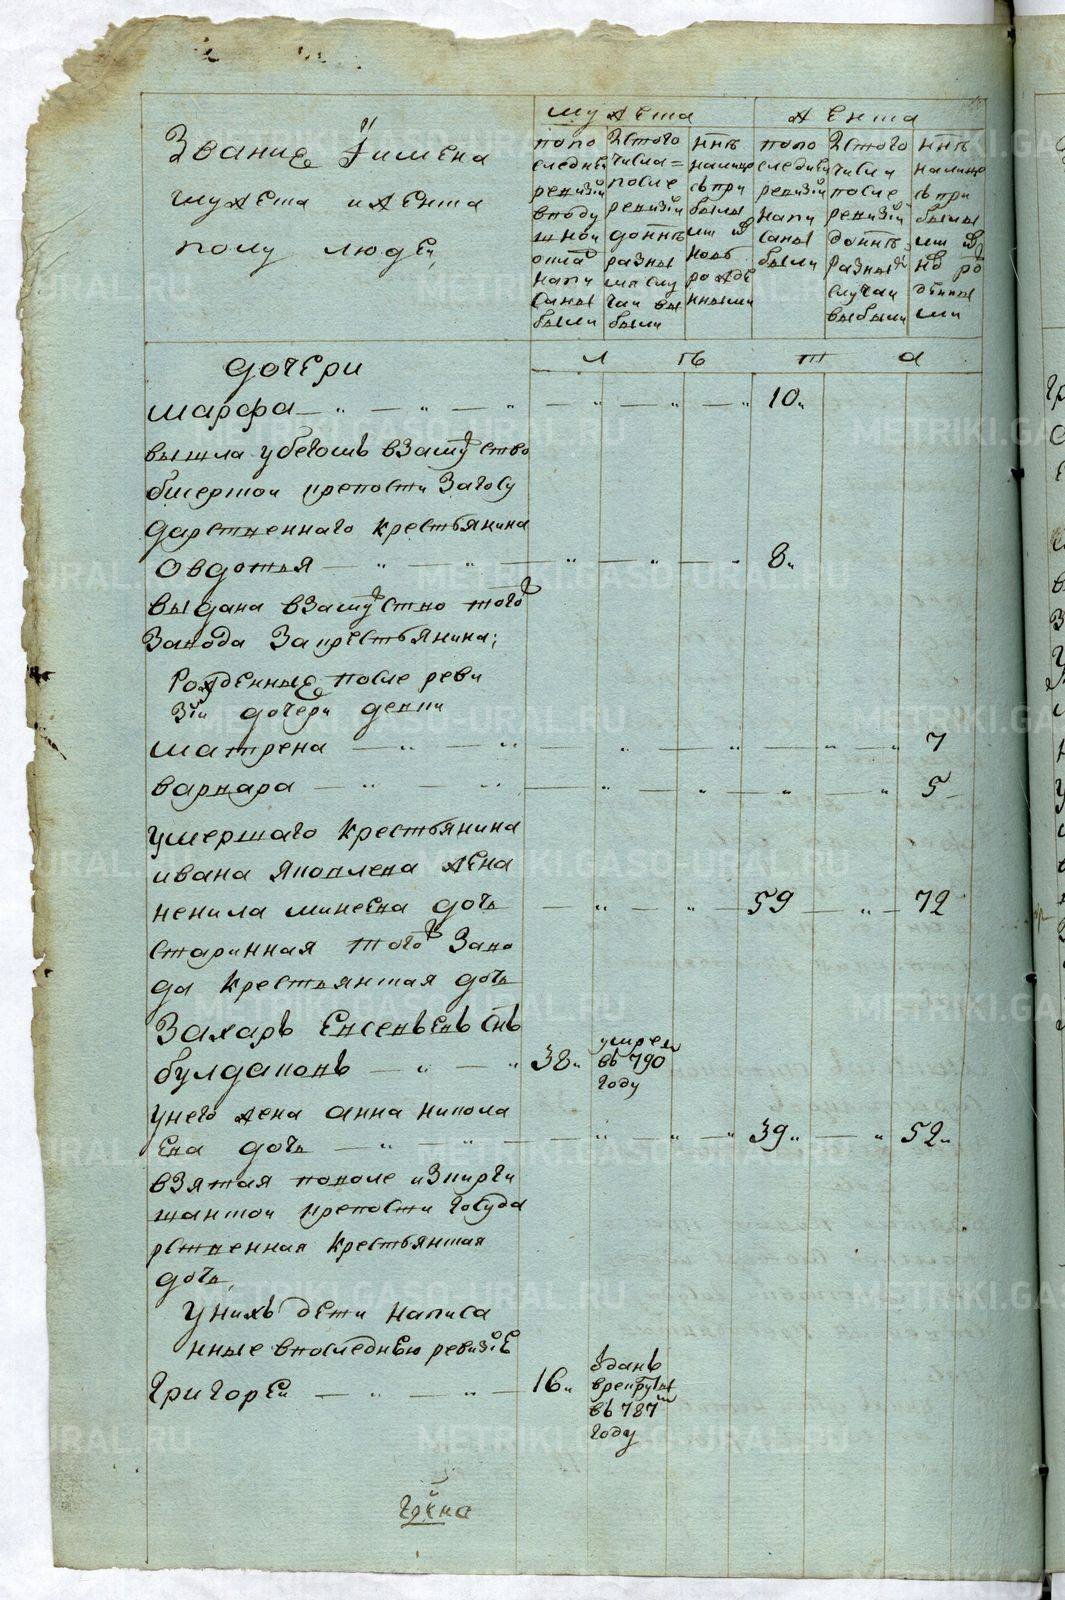 Званиe И имена
мужеска иженска
полу людеи
мужеска
попо
следнеи
ревизiи
вподу
шнои
окла
напи
саны
были
Изтого
числа
после
ревизiи
доннъ
разны
ми слу
чаи вы
были
ннъ
налицо
съ при
былы
ми и
новъ
рожде
нными
женска
попо
следнеи
ревизiи
напи
саны
были
Изтого
числа
после
ревизiи
доннъ
разны
случаи
выбыли
ннъ
налицо
съ при
былы
ми и
но ро
жденны
ми
л ѣ т а
дочери
марфа 10
вышла убегомъ взамужство
бисерткои крепости загосу
дарственнаго крестьянина
овдотья 8
выдана взамужство того
завода закрестьянина;
Рожденные после реви
зiи дочери девки
матрена 7
варвара 5
умершаго крестьянина
ивана яковлева жена
ненила минеева дочь 59 72
старинная того заво
да крестьянская дочь
Захаръ Евсевьевъ снъ
булдаковъ 38 умре
въ 790
году
унего жена анна никола
ева дочь 39 52
взятая поволе изкирги
шанскои крепости государ
рственная крестьянская
дочь
унихъ дети написа
нные впоследнею ревизiе
григореи 16 зданъ
врекруты
въ 787м
году